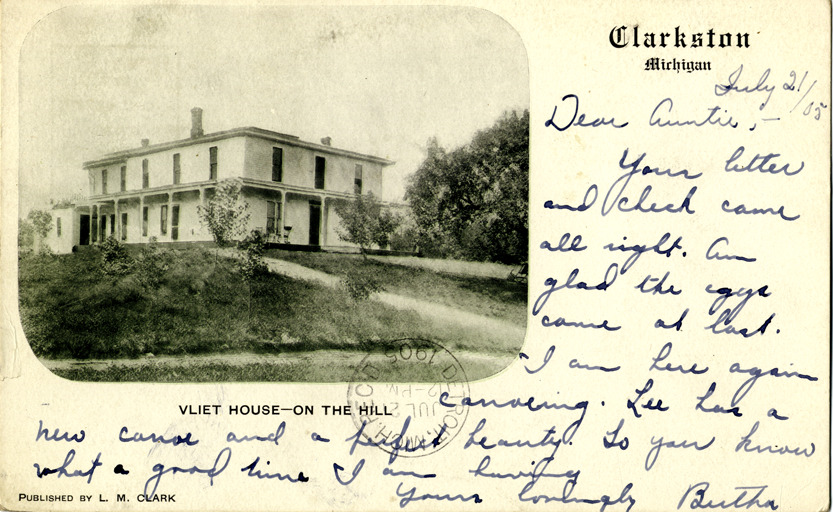 Clarkston
Michigan
July 21/05
Dear Auntie,-
Your letter
and check came
all right. Am
glad the eggs
came at last.
I am here again
canoeing. Lee has a
new canoe and a perfect beauty. So you know
what a good time I am having
Yours lovingly Bertha
VLIET HOUSE—ON THE HILL
DETROIT, MICH. REC'D
JUL 2
12-PM
1905
PUBLISHED BY L. M. CLARK